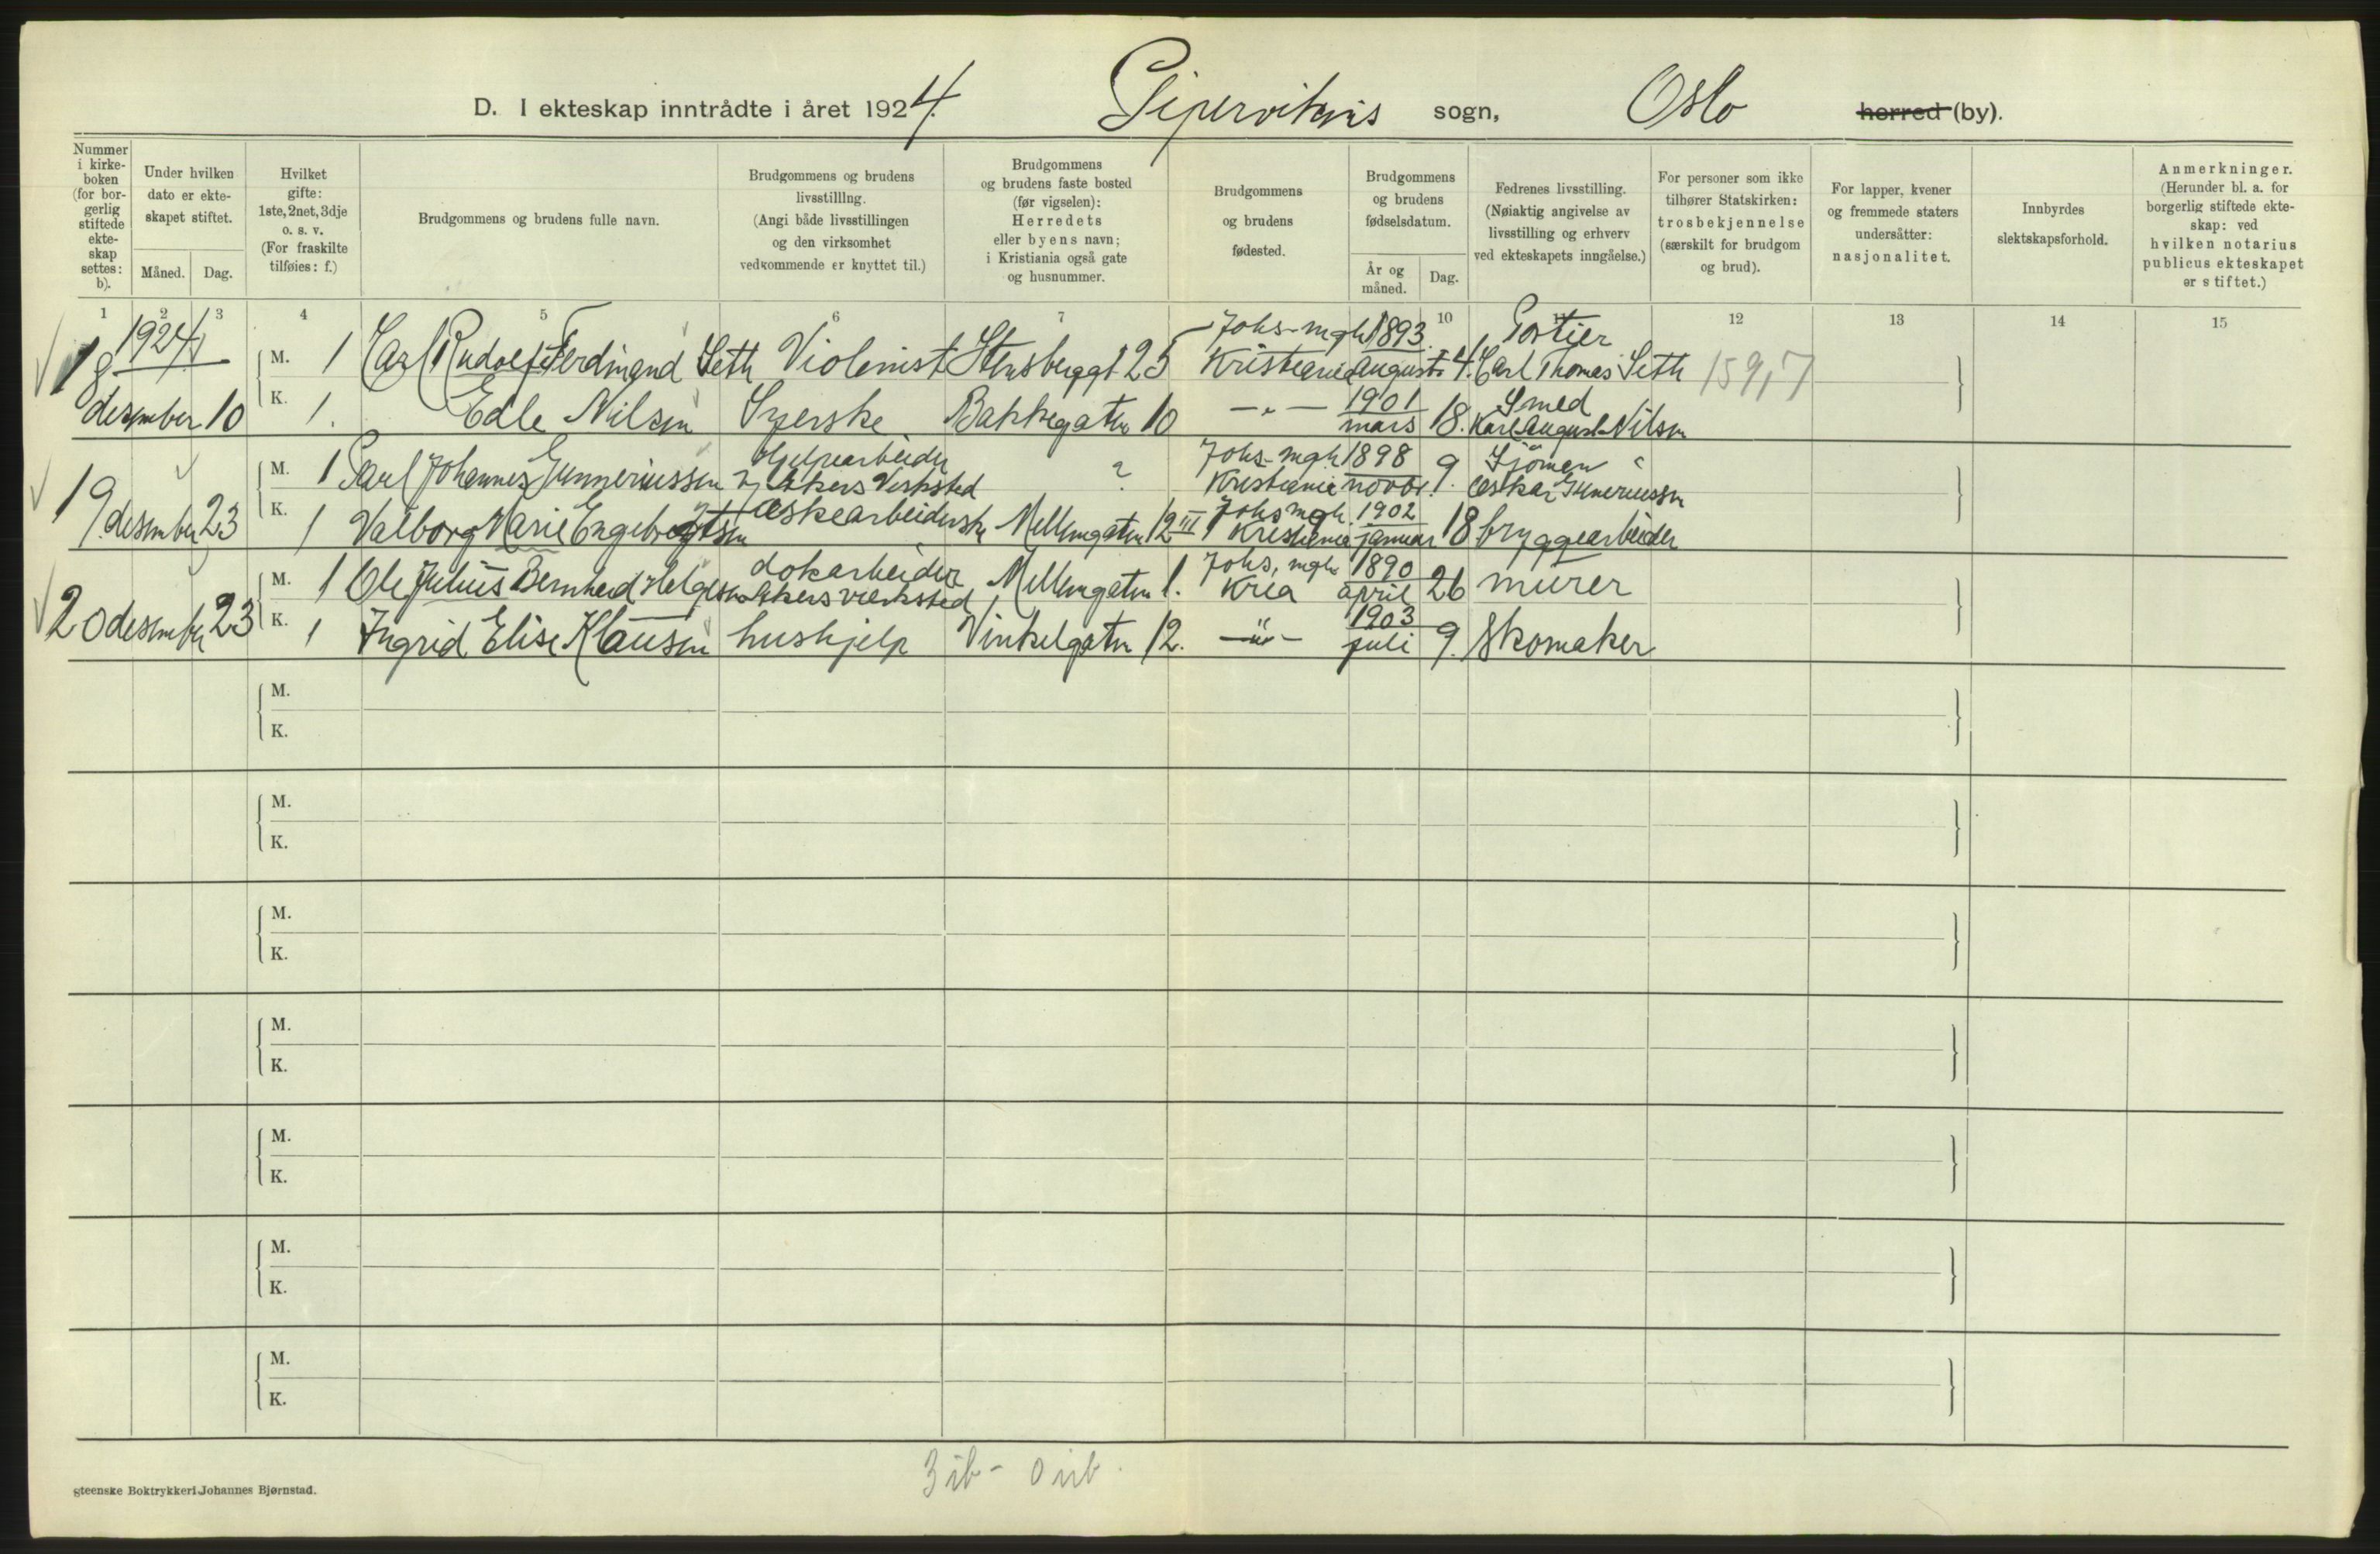 D. I ekteskap inntrådte i året 1924. Pipervikens sogn, Oslo herred (by).
Nummer i kirke-boken (for bor-gerlig stiftede ekte-skap settes: b).
Under hvilken dato er ekte-skapet stiftet.
Måned. Dag.
Hvilket gifte: 1ste, 2net, 3dje o. s. v. (For fraskilte tilføies: f.)
Brudgommens og brudens fulle navn.
Brudgommens og brudens livsstilling. (Angi både livsstillingen og den virksomhet vedkommende er knyttet til.)
Brudgommens og brudens faste bosted (før vigselen): Herredets eller byens navn; i Kristiania også gate og husnummer.
Brudgommens og brudens fødested.
Brudgommens og brudens fødselsdatum.
År og måned. Dag.
Fedrenes livsstilling. (Nøiaktig angivelse av livsstilling og erhverv ved ekteskapets inngåelse.)
For personer som ikke tilhører Statskirken: trosbekjennelse (særskilt for brudgom og brud).
For lapper, kvener og fremmede staters undersåtter: nasjonalitet.
Innbyrdes slektskapsforhold.
Anmerkninger. (Herunder bl. a. for borgerlig stiftede ekte-skap: ved hvilken notarius publicus ekteskapet er stiftet.)
1 2 3 4 5 6 7 10 12 13 14 15
1924
18 desember 10
M. 1 Carl Rudolf Ferdinand Seth Violinist Stensberggt 25 Johs-mgh Kristiania 1893 august 4. Portier Carl Thomas Seth 159,7
K. 1. Edle Nilsen Syerske Bakkegaten 10 -"- 1901 mars 18. Smed Karl August Nilsen
19 desember 23
M. 1 Paul Johannes Gunneriussen Hjelpearbeider v/ Akers Verksted ? Johs-mgh Kristiania 1898 novbr. 9. Sjömen Oskar Guneriussen
K. 1 Valborg Marie Engebregtsen Æskearbeiderske Mellemgaten 12 III Johs mgh. Kristiania 1902 januar 18 bryggearbeider
20 desember 23
M. 1 Ole Julius Bernhard Helgesen dokarbeider Akers værksted Mellemgaten 1. Johs, mgh Kria 1890 april 26 murer
K. 1 Ingrid Elise Klausen hushjelp Vinkelgaten 12. -"- 1903 juli 9. Skomaker
M.
K.
M.
K.
M.
K.
M.
K.
M.
K.
M.
K.
M.
K.
3 ib - 0 uib.
steenske Boktrykkeri Johannes Bjørnstad.